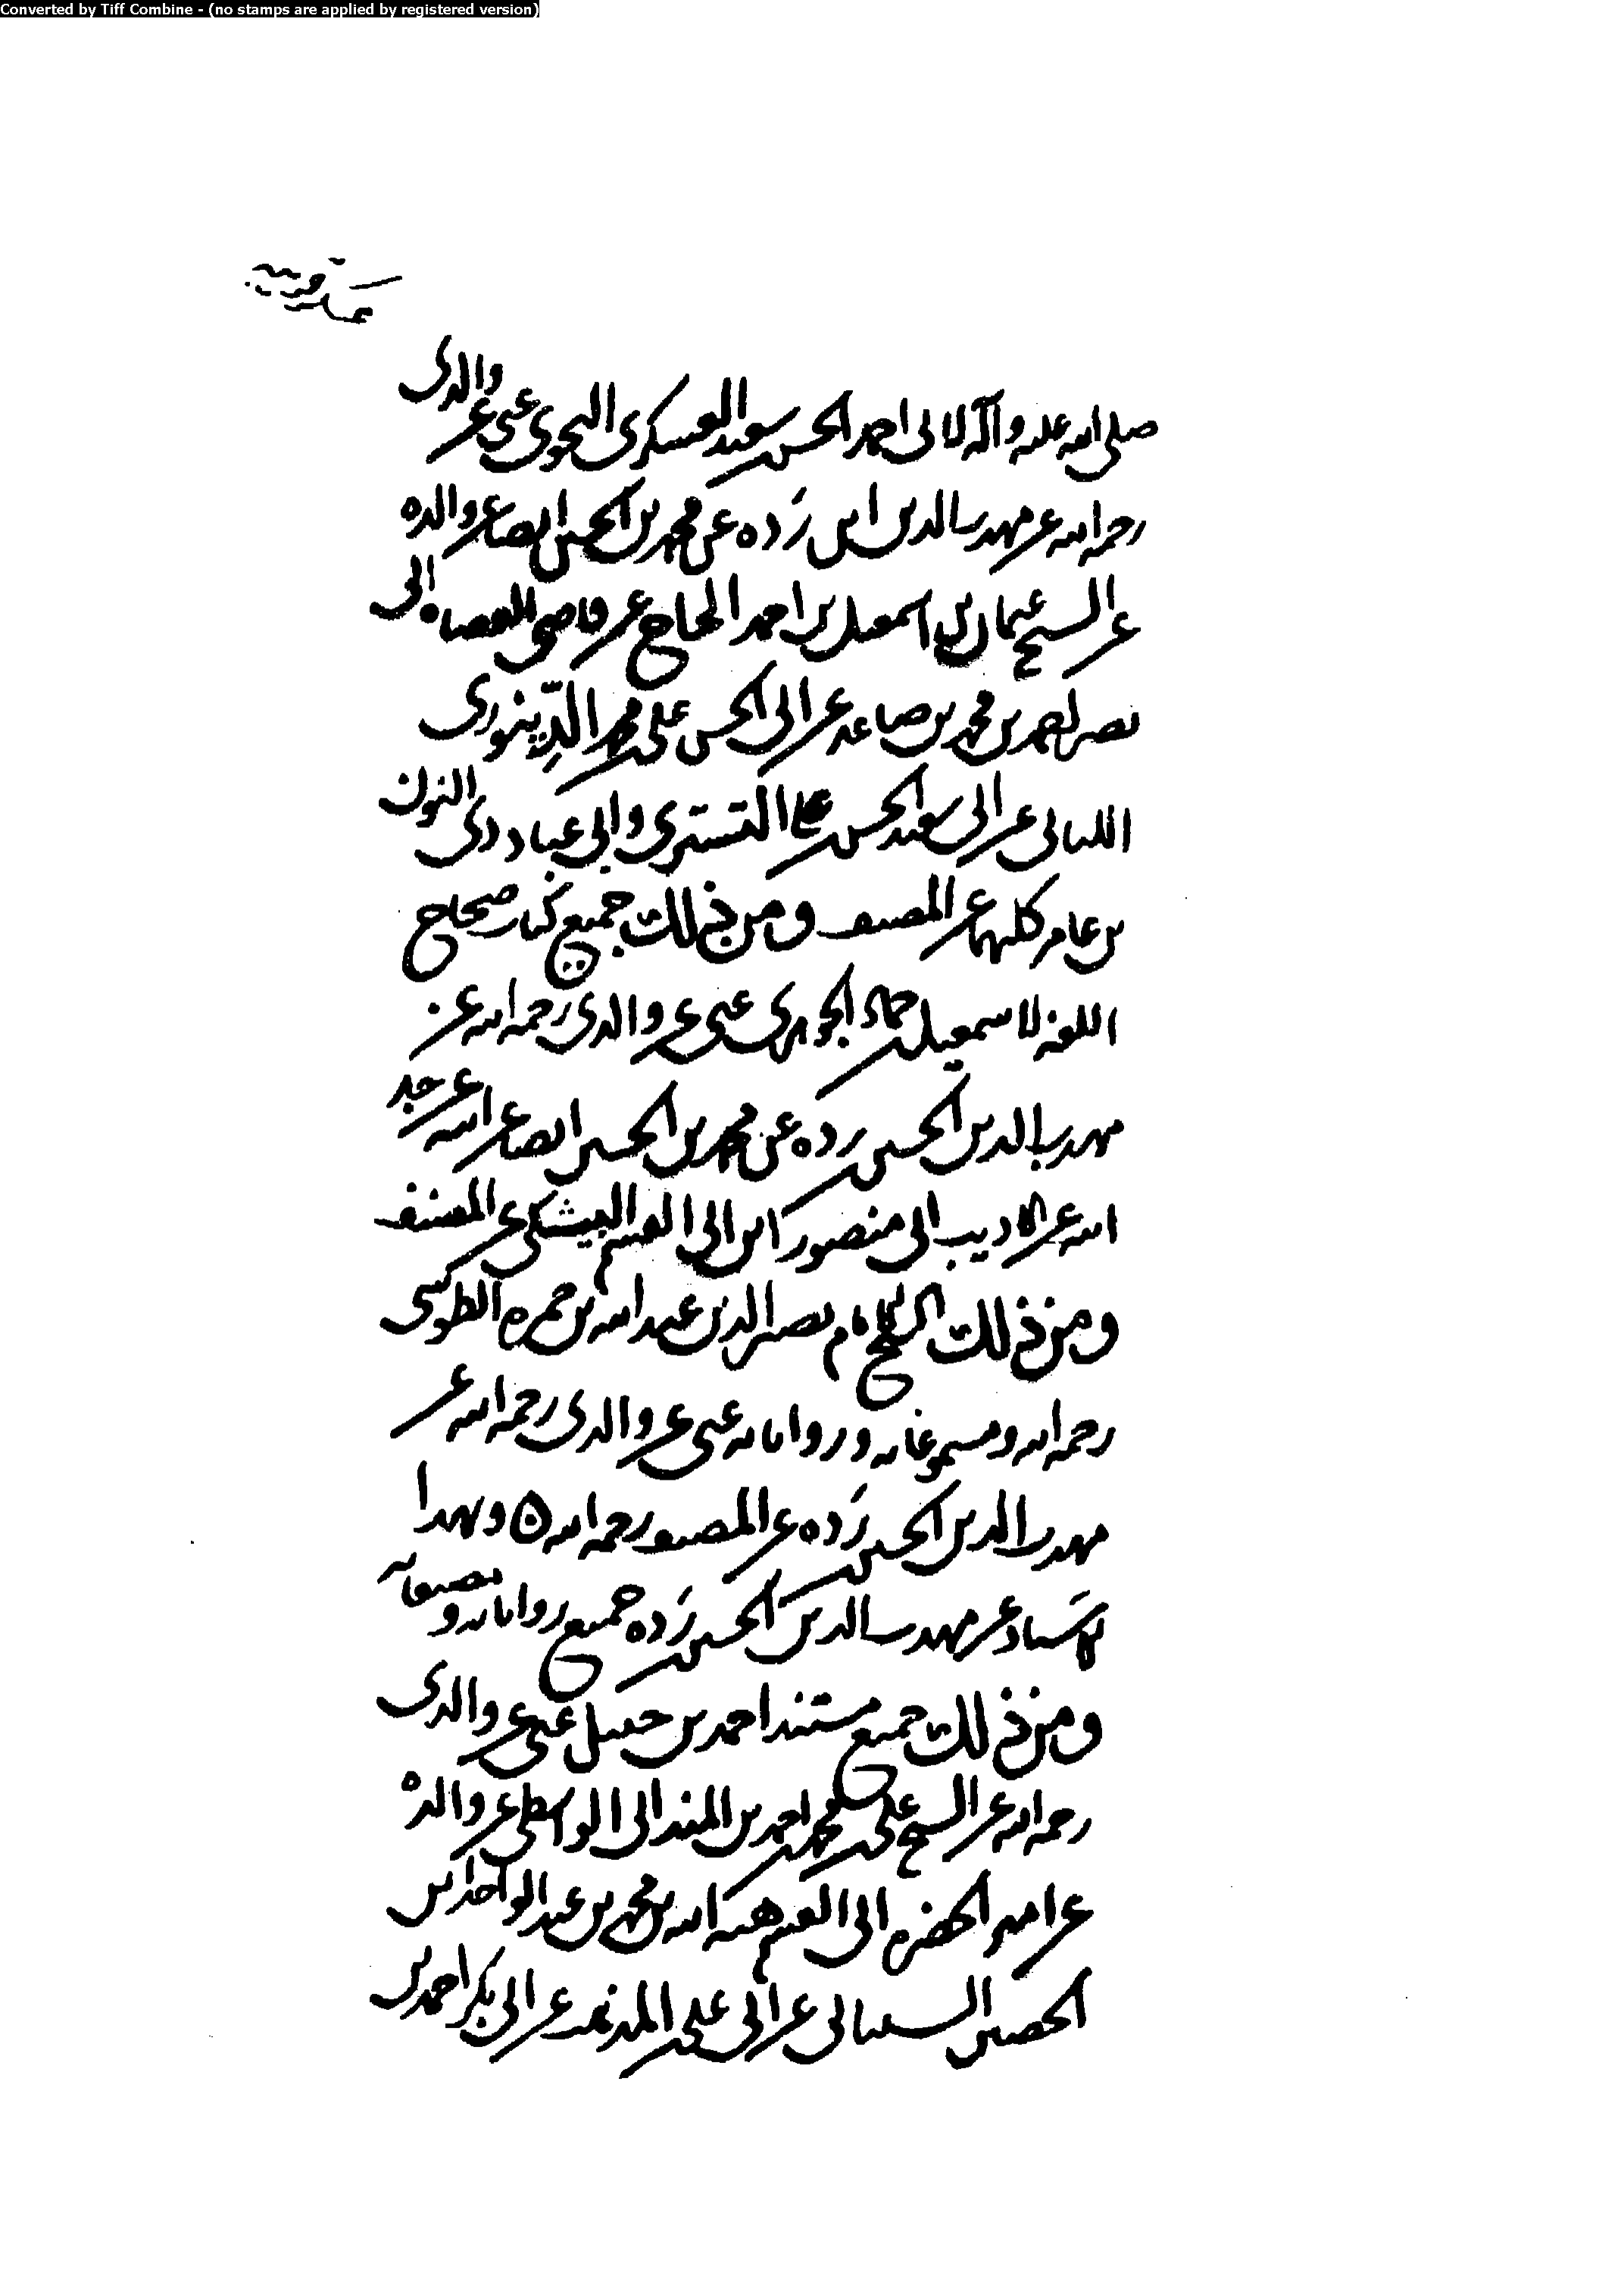 Converted by Tiff Combine - (no stamps are applied by registered version)
صلى الله عليه وآله لابى احمد الحسن بن سعيد العسكرى النحوى عنى عن والدى
رحمه الله عن مهذب الدين ابن رَده عن محمد بن الحسين ايضا عن والده
عن الشيخ عثمان بن اسمعيل بن احمد الحاج عن قاضى القضاه ابى
نصر احمد بن محمد بن صاعد عن ابى الحسن على بن محمد الدِّينورى
اللبانى عن ابى سعيد الحسن بن على التسترى وابى عباد ذى النون
بن عامر كليهما عن المصنف ومن ذلك جميع كتاب صحاح
اللغه لاسمعيل بن حماد الجوهرى عنى عن والدى رحمه الله عن
مهذب الدين الحسين بن رده عن محمد بن الحسين ايضا عن ابيه عن جد
ابيه عن الاديب ابى منصور ابن ابى القسم البيشكى عن المصنف
ومن ذلك الشيخ الامام نصير الدين عبد الله بن حمزه الطوسى
رحمه الله ومسموعاته ورواياته عنى عن والدى رحمه الله عن
مهذب الدين الحسين بن رَده عن المصنف رحمه الله ٥ وبهذا
الاسناد عن مهذب الدين الحسين بن رَده جميع رواياته و مصنفاته
ومن ذلك جميع مسند احمد بن حنبل عنى عن والدى
رحمه الله عن الشيخ على بن محمد بن احمد بن المندائى الواسطى عن والده
عن ابى القسم هبه الله بن محمد بن عبد الواحد بن
الحصين الشيبانى عن ابى على بن المذهب عن ابى بكر احمد بن